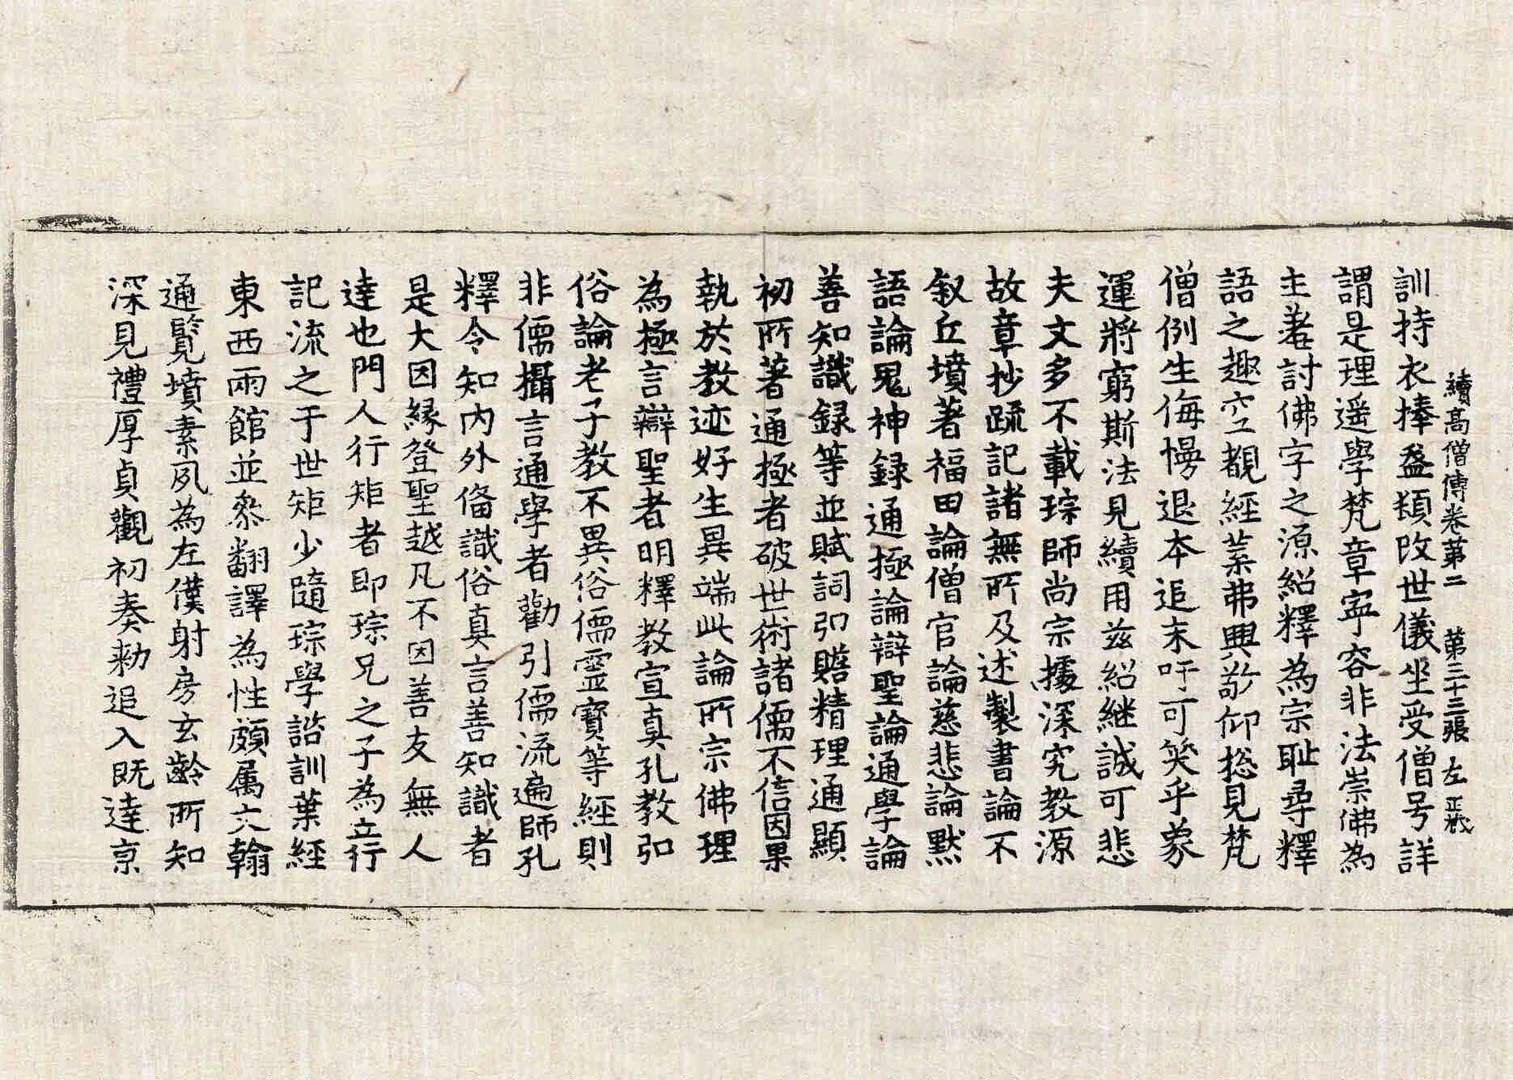 續高僧傳卷第二 第三十三張 左
訓持衣捧盋頬改世儀坐受僧号詳
謂是理遥學梵章寧容非法崇佛為
主羞討佛字之源紹釋為宗耻尋釋
語之趣空覩經葉弗興敬仰揔見梵
僧例生侮慢退本追末吁可笑乎象
運將窮斯法見續用兹紹継誠可悲
夫文多不載琮師尚宗據深究教源
故章抄䟽記諸無所及述製書論不
叙丘墳著福田論僧官論慈悲論黙
語論鬼神録通極論辯聖論通學論
善知識録等並賦詞弘贍精理通顯
初所著通極者破世術諸儒不信因果
執於教迹好生異端此論所宗佛理
為極言辯聖者明釋教宣真孔教弘
俗論老子教不異俗儒靈寳等經則
非儒攝言通學者勸引儒流遍師孔
釋令知內外俻識俗真言善知識者
是大因縁登聖越凡不因善友無人
達也門人行矩者即琮兄之子為立行
記流之于世矩少隨琮學諮訓葉經
東西兩館並叅翻譯為性頗属文翰
通覽墳素夙為左僕射房玄齡所知
深見禮厚貞觀初奏勑追入既達京